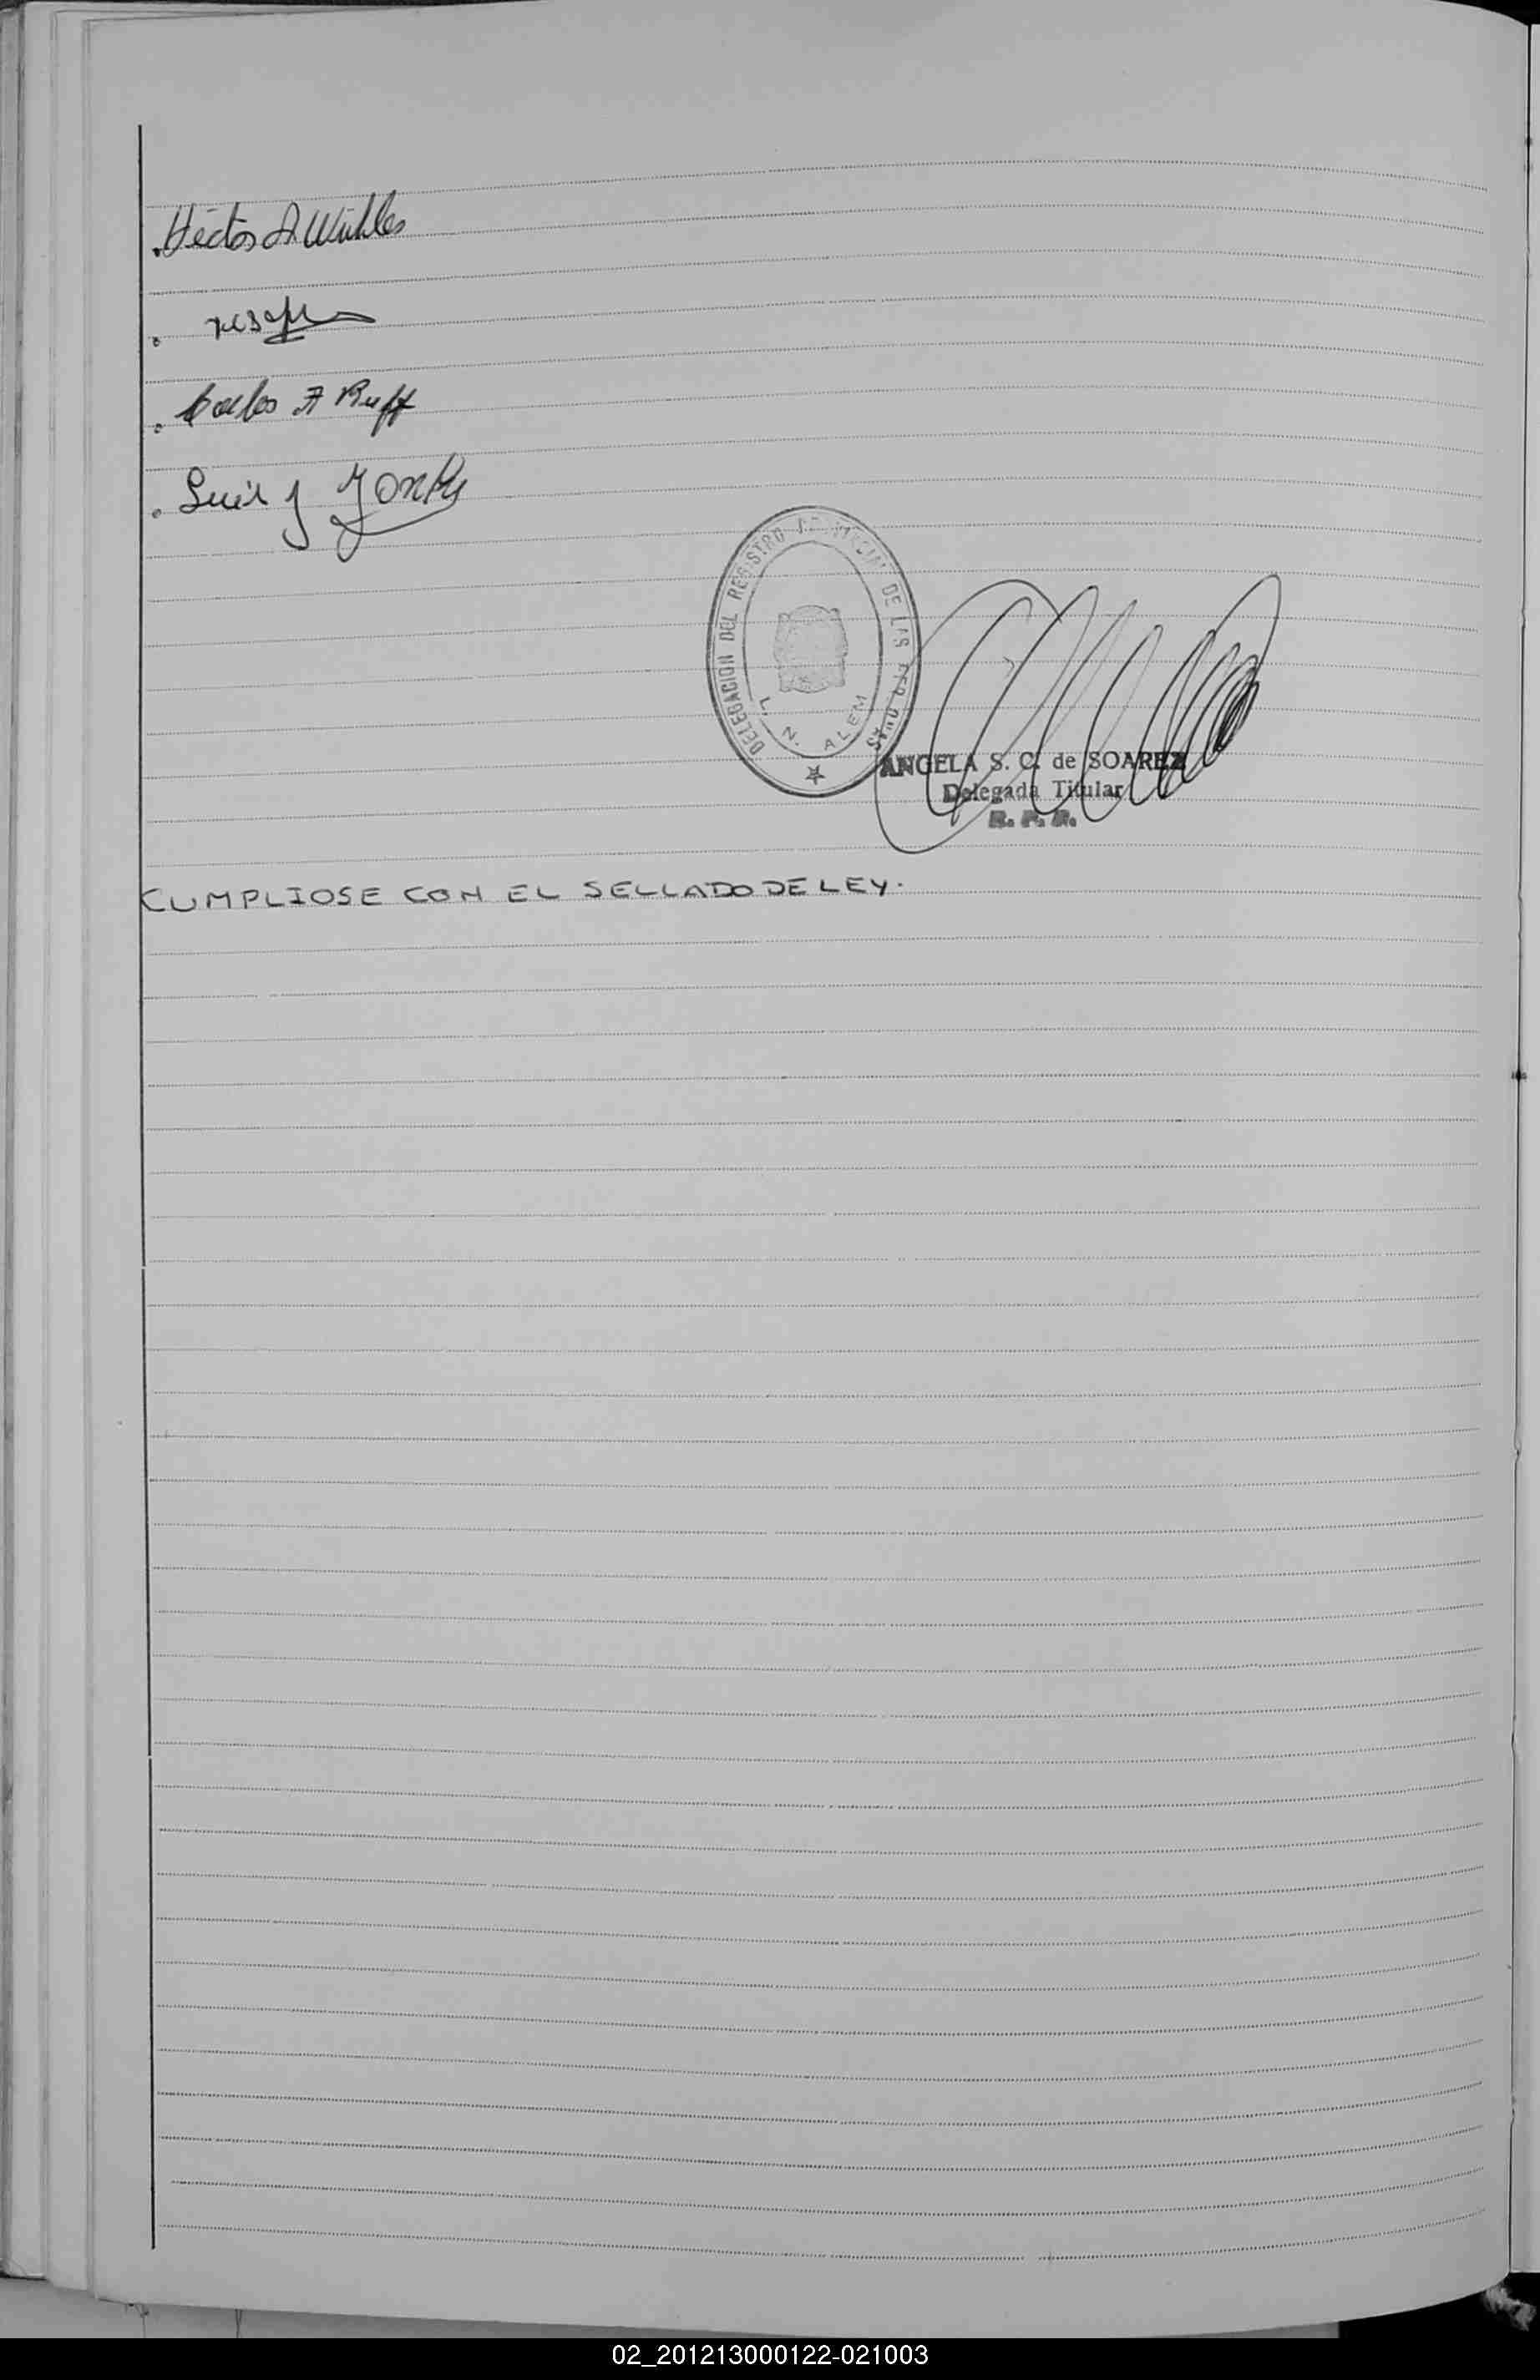 Héctor A
Carlos A Ruff
Luis J
DELEGACION DEL REGISTRO PROVINCIAL DE LAS PERSONAS
L. N. ALEM
ANGELA S. C. de SOAREZ
Delegada Titular
R. P. P.
CUMPLIOSE CON EL SELLADO DE LEY.
02_201213000122-021003